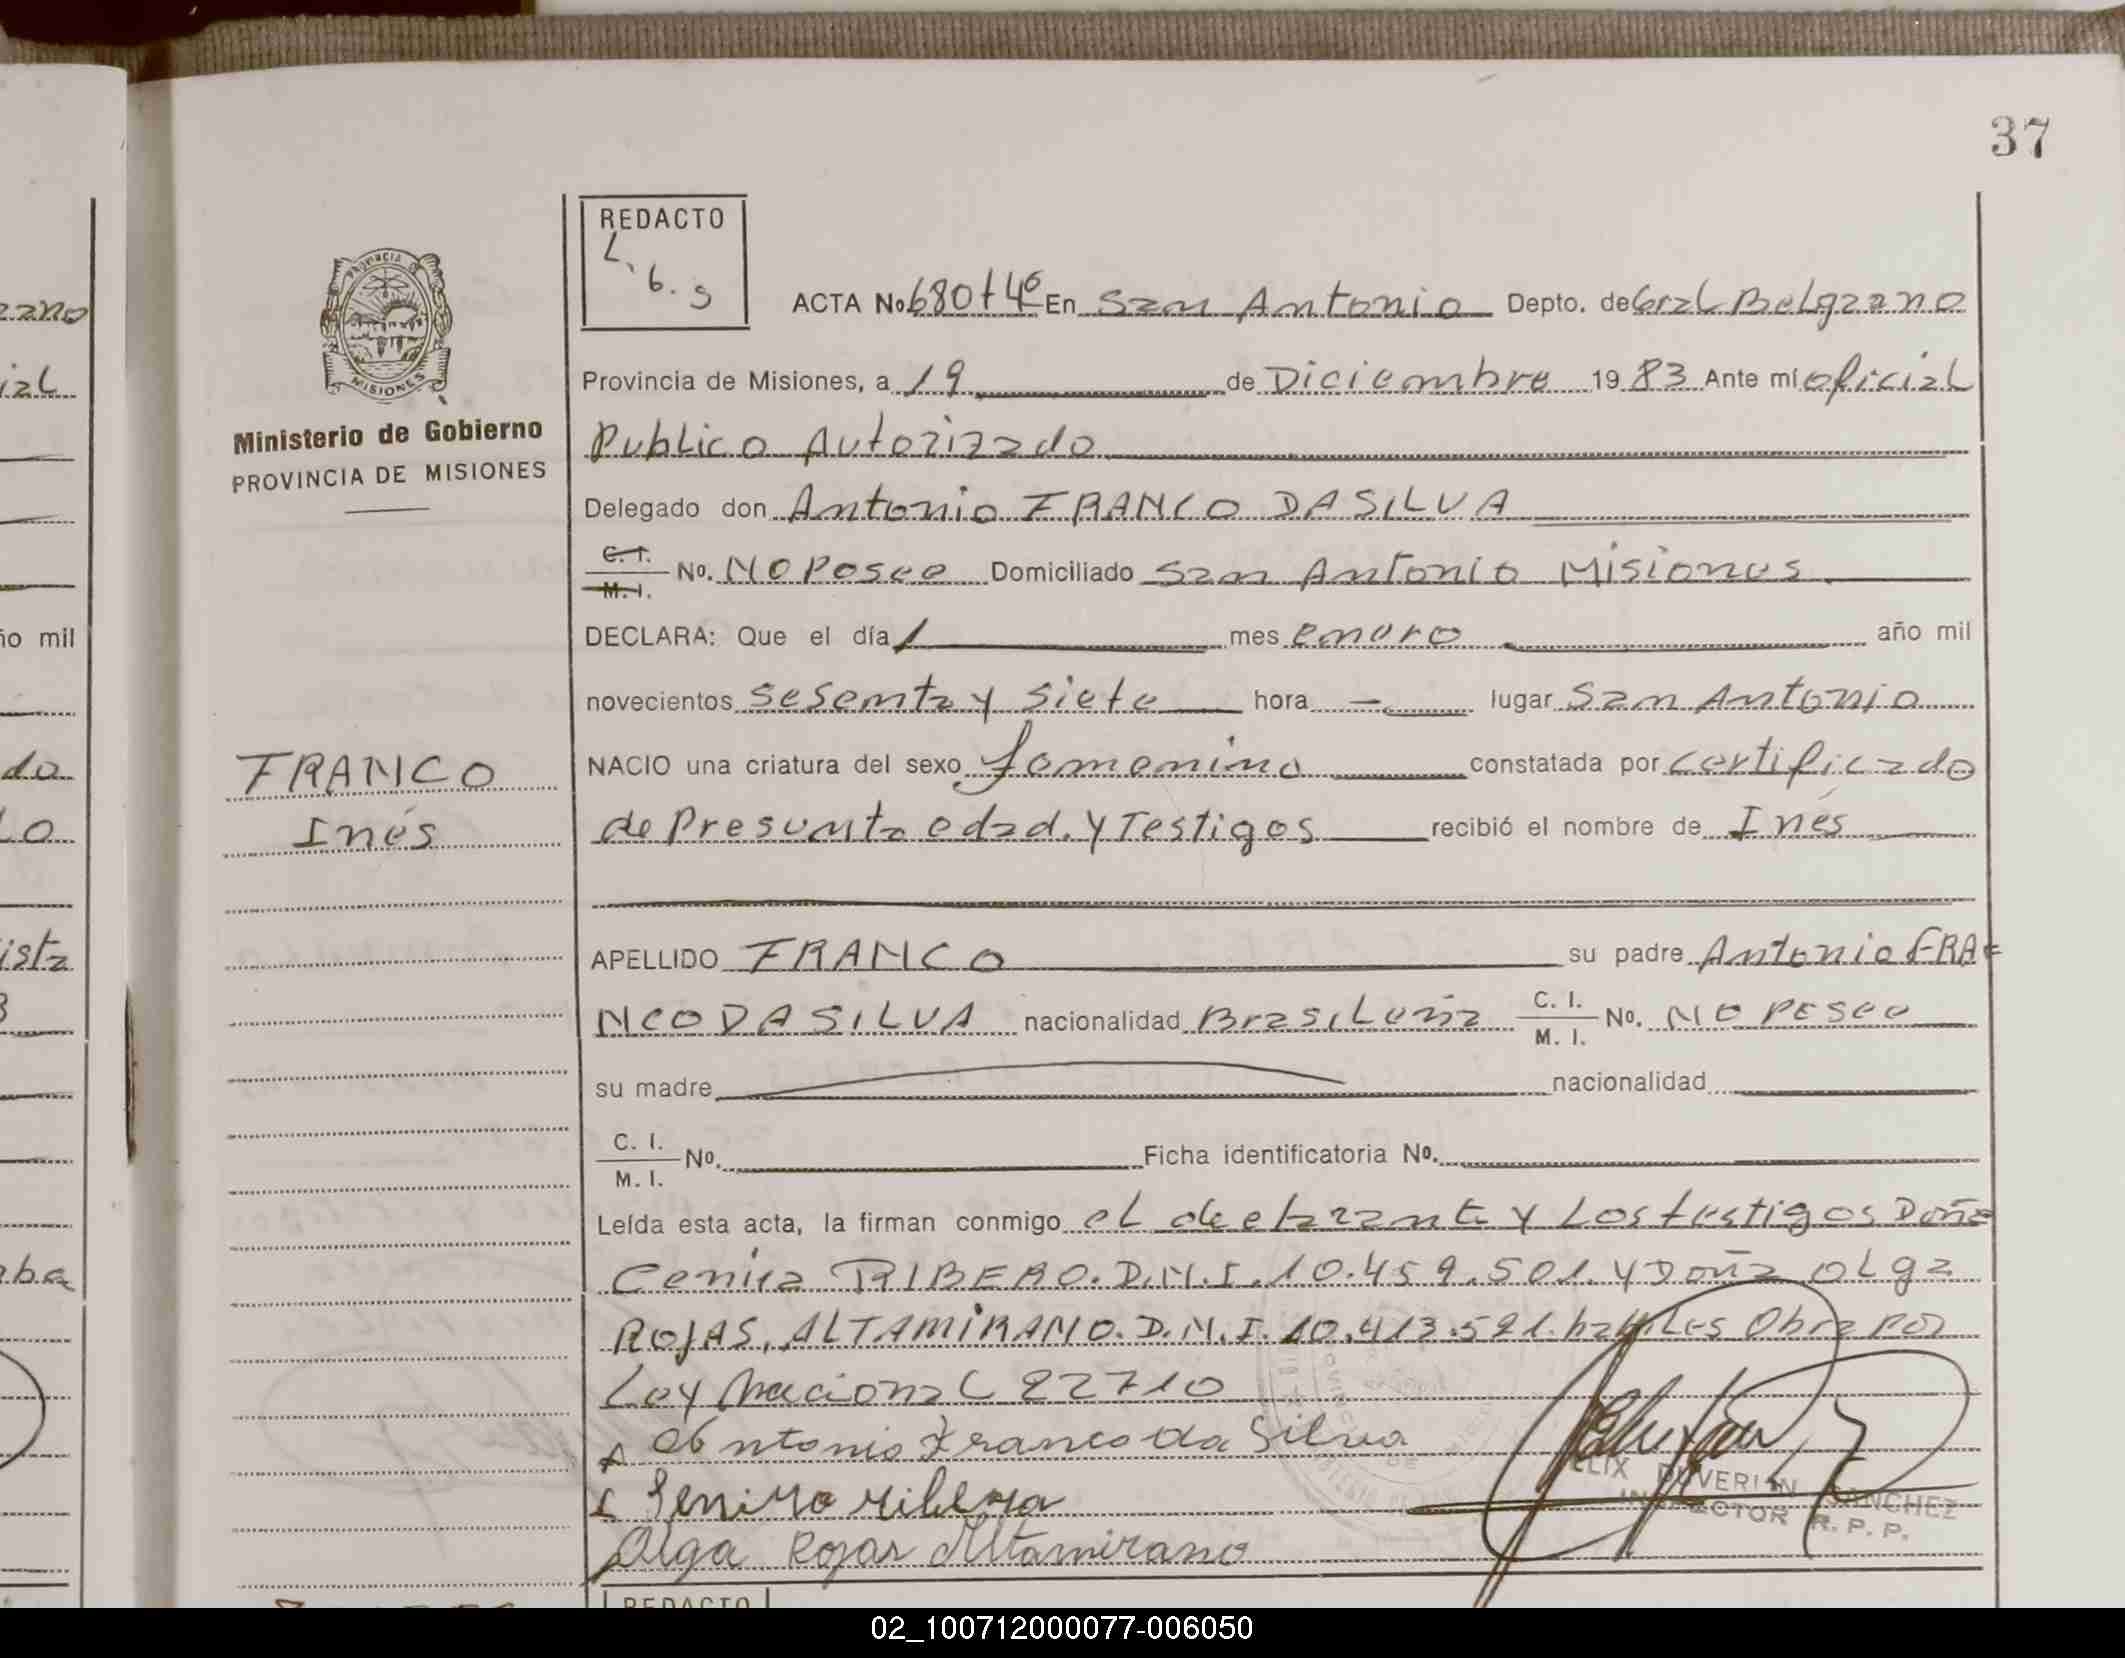 37
REDACTO
L. G. S
ACTA No. 680 t 4º En San Antonio Depto. de Gral Belgrano
Provincia de Misiones, a 19 de Diciembre 1983 Ante mí oficial
Publico Autorizado
Delegado don Antonio FRANCO DASILVA
C. I. / M. I. No. NO Posee Domiciliado San Antonio Misiones
DECLARA: Que el día 1 mes enero año mil
novecientos sesenta y siete hora - lugar San Antonio
NACIO una criatura del sexo femenino constatada por certificado
de Presunta edad. y Testigos recibió el nombre de Inés
APELLIDO FRANCO su padre Antonio FRA=
NCO DA SILVA nacionalidad Brasileña C. I. / M. I. No. NO POSEE
su madre nacionalidad
C. I. / M. I. No. Ficha identificatoria No.
Leída esta acta, la firman conmigo el declarante y Los testigos Doña
RIBERO. D.N.I. 10.459.501. y Doña OLga
ROJAS, ALTAMIRANO. D.N.I. 10.413.521. habiles Obra por
Ley Nacional 22710
Antonio Franco da Silva
Olga Rojas Altamirano
FELIX DUVERIAN SANCHEZ
INSPECTOR R. P. P.
PROVINCIA DE
MISIONES
Ministerio de Gobierno
PROVINCIA DE MISIONES
FRANCO
Inés
REDACTO
ño mil
02_100712000077-006050